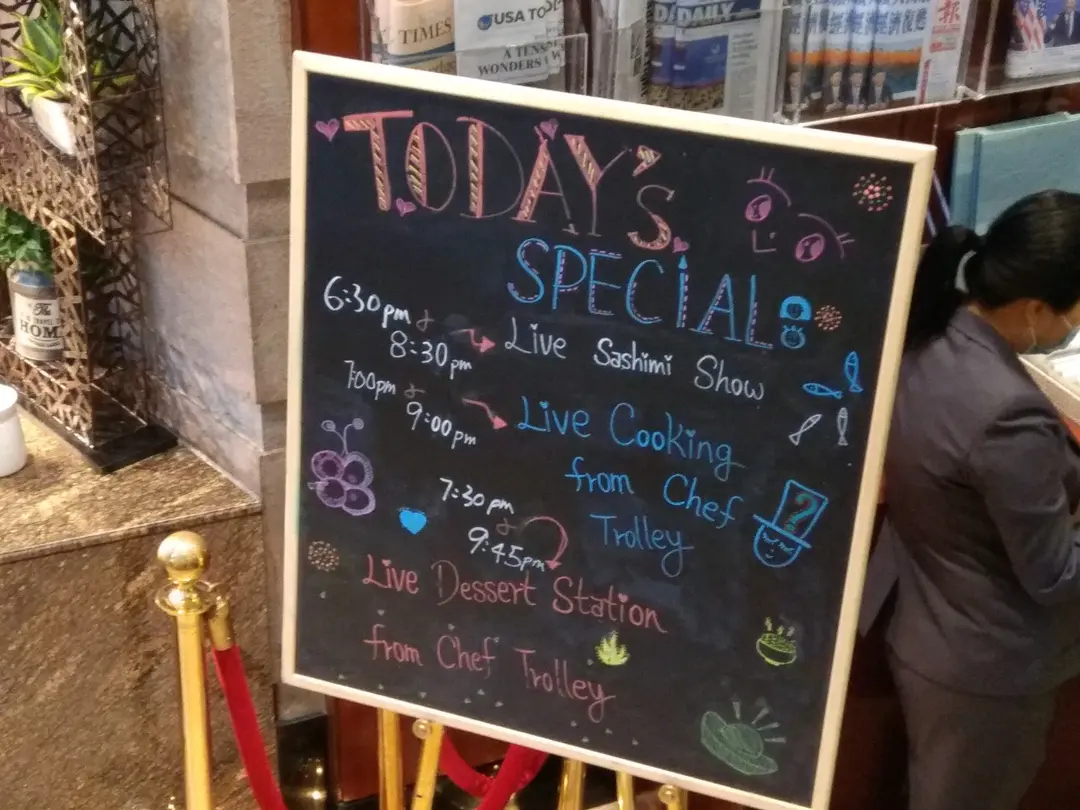 TIMES
USA TO
A TENS
WONDERS
DAILY
報
The
HOM
TODAY's
SPECIAL
6:30pm &
8:30pm
Live Sashimi Show
7:00pm &
9:00pm
Live Cooking
from Chef
Trolley
7:30pm
&
9:45pm
Live Dessert Station
from Chef Trolley
?